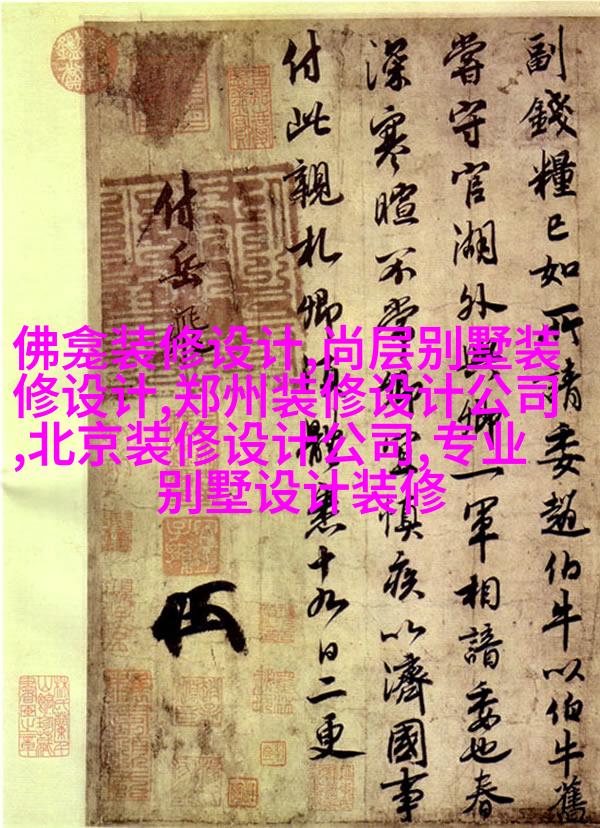 副錢糧已如所請委趙伯牛以伯牛舊
嘗守官湖外與卿一軍相諳委也春
深寒暄不常卿宜慎疾以濟國事
付此親札卿須體悉十九日二更
付岳飛
佛龛装修设计,尚层别墅装
修设计,郑州装修设计公司
,北京装修设计公司,专业
别墅设计装修